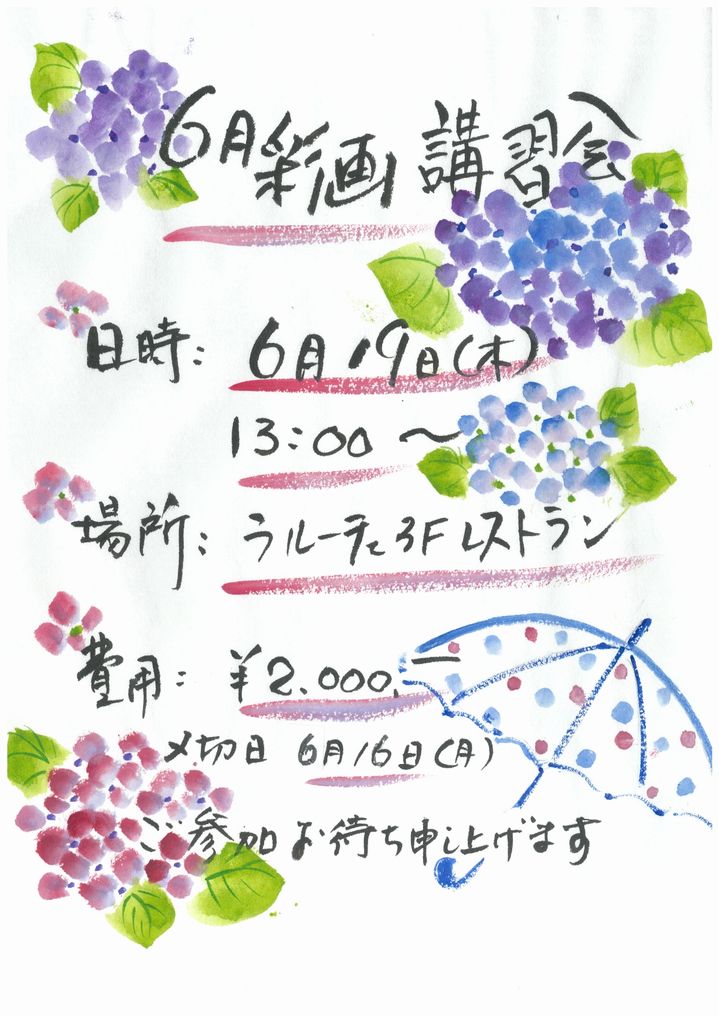 6月彩画講習会
日時: 6月19日(木)
13:00 〜
場所: ラルーチェ3Fレストラン
費用: ¥2.000.ー
〆切日 6月16日(月)
ご参加お待ち申し上げます